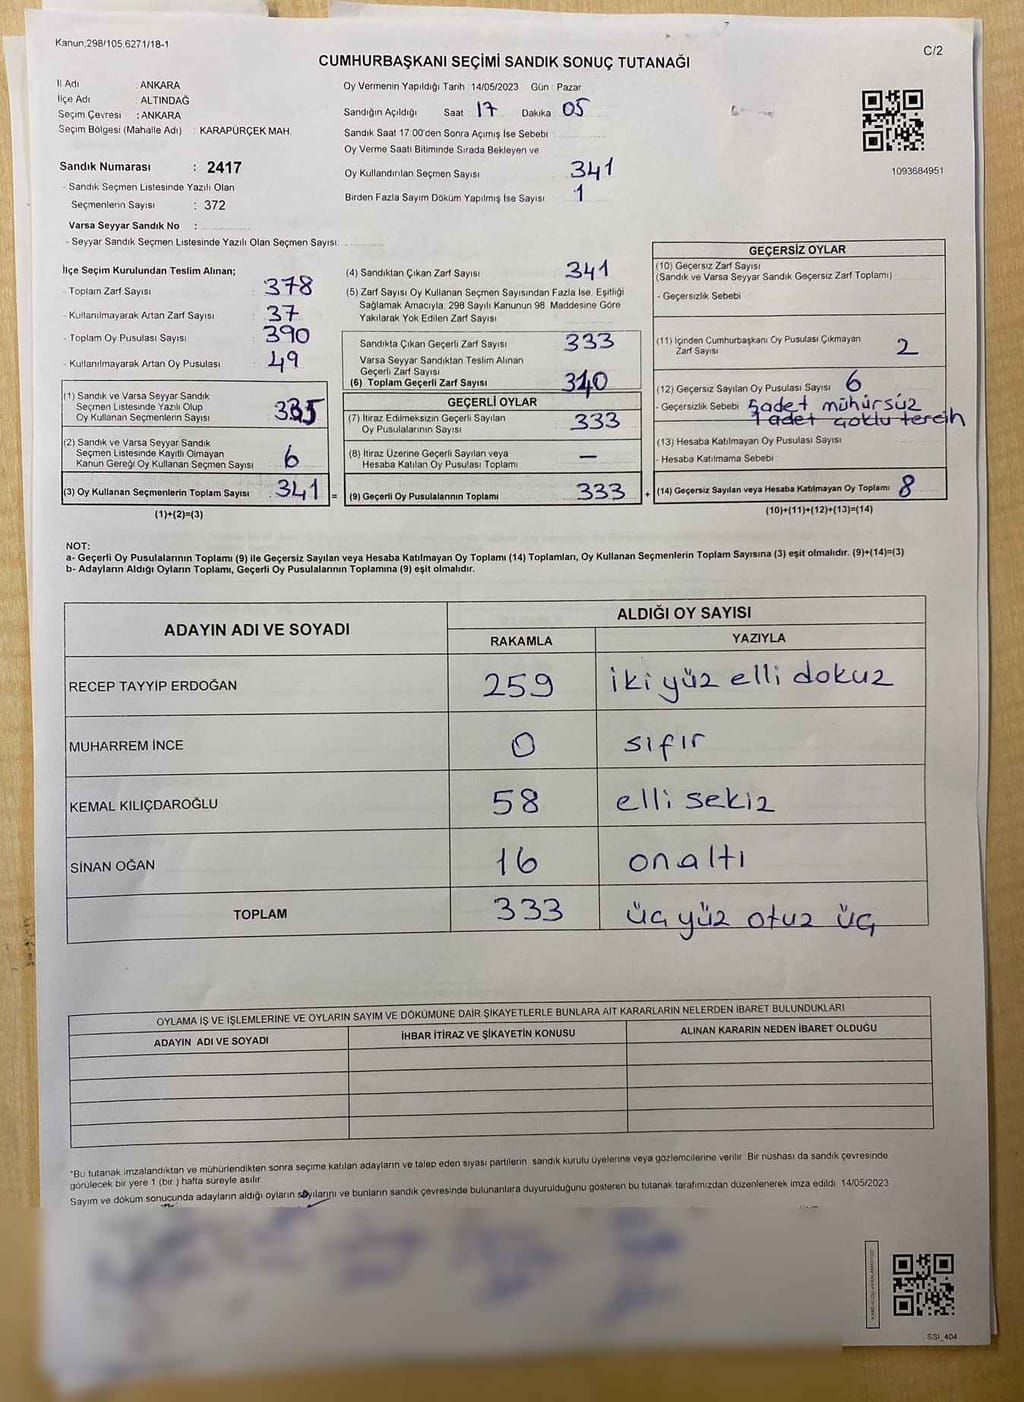 Kanun,298/105.6271/18-1
C/2
CUMHURBAŞKANI SEÇİMİ SANDIK SONUÇ TUTANAĞI
İl Adı : ANKARA
İlçe Adı : ALTINDAĞ
Seçim Çevresi : ANKARA
Seçim Bölgesi (Mahalle Adı) : KARAPÜRÇEK MAH.
Sandık Numarası : 2417
- Sandık Seçmen Listesinde Yazılı Olan
Seçmenlerin Sayısı : 372
Varsa Seyyar Sandık No :
- Seyyar Sandık Seçmen Listesinde Yazılı Olan Seçmen Sayısı:
Oy Vermenin Yapıldığı Tarih 14/05/2023 Gün : Pazar
Sandığın Açıldığı Saat : 17 Dakika : 05
Sandık Saat 17.00'den Sonra Açımış İse Sebebi :
Oy Verme Saati Bitiminde Sırada Bekleyen ve
Oy Kullandırılan Seçmen Sayısı : 341
Birden Fazla Sayım Döküm Yapılmış İse Sayısı : 1
1093684951
İlçe Seçim Kurulundan Teslim Alınan;
- Toplam Zarf Sayısı : 378
- Kullanılmayarak Artan Zarf Sayısı : 37
- Toplam Oy Pusulası Sayısı : 390
- Kullanılmayarak Artan Oy Pusulası : 49
(1) Sandık ve Varsa Seyyar Sandık
Seçmen Listesinde Yazılı Olup
Oy Kullanan Seçmenlerin Sayısı : 335
(2) Sandık ve Varsa Seyyar Sandık
Seçmen Listesinde Kayıtlı Olmayan
Kanun Gereği Oy Kullanan Seçmen Sayısı : 6
(3) Oy Kullanan Seçmenlerin Toplam Sayısı : 341 =
(1)+(2)=(3)
(4) Sandıktan Çıkan Zarf Sayısı : 341
(5) Zarf Sayısı Oy Kullanan Seçmen Sayısından Fazla İse, Eşitliği
Sağlamak Amacıyla; 298 Sayılı Kanunun 98. Maddesine Göre
Yakılarak Yok Edilen Zarf Sayısı :
Sandıkta Çıkan Geçerli Zarf Sayısı : 333
Varsa Seyyar Sandıktan Teslim Alınan
Geçerli Zarf Sayısı :
(6) Toplam Geçerli Zarf Sayısı :
GEÇERLİ OYLAR
(7) İtiraz Edilmeksizin Geçerli Sayılan
Oy Pusulalarının Sayısı : 333
(8) İtiraz Üzerine Geçerli Sayılan veya
Hesaba Katılan Oy Pusulası Toplamı : —
(9) Geçerli Oy Pusulalarının Toplamı : 333 +
GEÇERSİZ OYLAR
(10) Geçersiz Zarf Sayısı
(Sandık ve Varsa Seyyar Sandık Geçersiz Zarf Toplamı) :
- Geçersizlik Sebebi :
(11) İçinden Cumhurbaşkanı Oy Pusulası Çıkmayan
Zarf Sayısı : 2
(12) Geçersiz Sayılan Oy Pusulası Sayısı : 6
- Geçersizlik Sebebi : 5 adet mühürsüz
1 adet çoklu tercih
(13) Hesaba Katılmayan Oy Pusulası Sayısı :
- Hesaba Katılmama Sebebi :
(14) Geçersiz Sayılan veya Hesaba Katılmayan Oy Toplamı : 8
(10)+(11)+(12)+(13)=(14)
NOT:
a- Geçerli Oy Pusulalarının Toplamı (9) ile Geçersiz Sayılan veya Hesaba Katılmayan Oy Toplamı (14) Toplamları, Oy Kullanan Seçmenlerin Toplam Sayısına (3) eşit olmalıdır. (9)+(14)=(3)
b- Adayların Aldığı Oyların Toplamı, Geçerli Oy Pusulalarının Toplamına (9) eşit olmalıdır.
ADAYIN ADI VE SOYADI
ALDIĞI OY SAYISI
RAKAMLA YAZIYLA
RECEP TAYYİP ERDOĞAN 259 iki yüz elli dokuz
MUHARREM İNCE 0 sıfır
KEMAL KILIÇDAROĞLU 58 elli sekiz
SİNAN OĞAN 16 on altı
TOPLAM 333 üç yüz otuz üç
OYLAMA İŞ VE İŞLEMLERİNE VE OYLARIN SAYIM VE DÖKÜMÜNE DAİR ŞİKAYETLERLE BUNLARA AİT KARARLARIN NELERDEN İBARET BULUNDUKLARI
ADAYIN ADI VE SOYADI İHBAR İTİRAZ VE ŞİKAYETİN KONUSU ALINAN KARARIN NEDEN İBARET OLDUĞU
*Bu tutanak imzalandıktan ve mühürlendikten sonra seçime katılan adayların ve talep eden siyasi partilerin sandık kurulu üyelerine veya gözlemcilerine verilir. Bir nüshası da sandık çevresinde
görülecek bir yere 1 (bir ) hafta süreyle asılır.
Sayım ve döküm sonucunda adayların aldığı oyların sayılarını ve bunların sandık çevresinde bulunanlara duyurulduğunu gösteren bu tutanak tarafımızdan düzenlenerek imza edildi. 14/05/2023
SSI_404